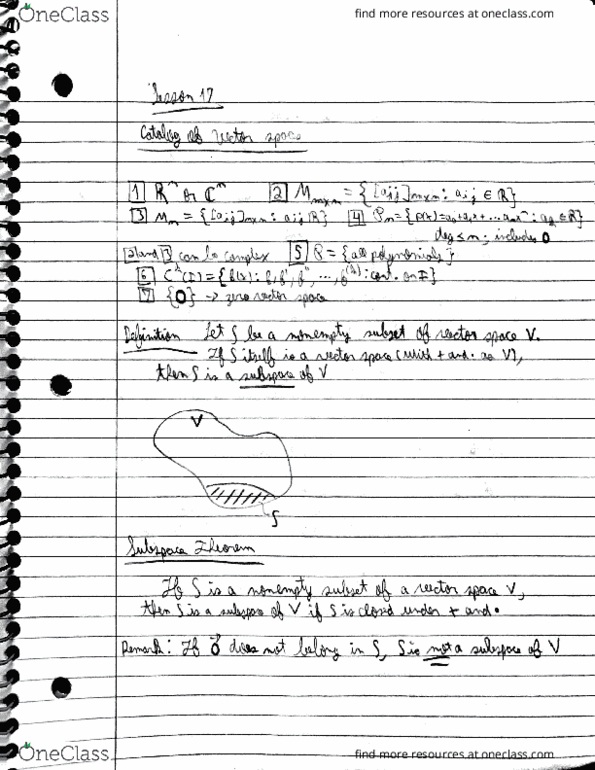 OneClass
find more resources at oneclass.com
Lesson 17
Catalog of vector spaces
1 Rⁿ or Cⁿ 2 Mₘₓₙ = {[aᵢⱼ]ₘₓₙ : aᵢⱼ ∈ R}
3 Mₙ = {[aᵢⱼ]ₙₓₙ : aᵢⱼ R} 4 Pₙ = {P(x) = a₀+a₁x+...aₙxⁿ : aₖ ∈ R}
deg ≤ n ; includes 0
2 and 3 can be complex 5 P = {all polynomials}
6 Cᵏ(I) = {f(x) : f, f', f'', ..., f⁽ᵏ⁾ : cont. on I}
7 {0} → zero vector space
Definition Let S be a nonempty subset of vector space V.
If S itself is a vector space (with + and · as V),
then S is a subspace of V
V
S
Subspace Theorem
If S is a nonempty subset of a vector space V,
then S is a subspace of V if S is closed under + and ·
Remark: If 0⃗ does not belong in S, S is not a subspace of V
OneClass
find more resources at oneclass.com